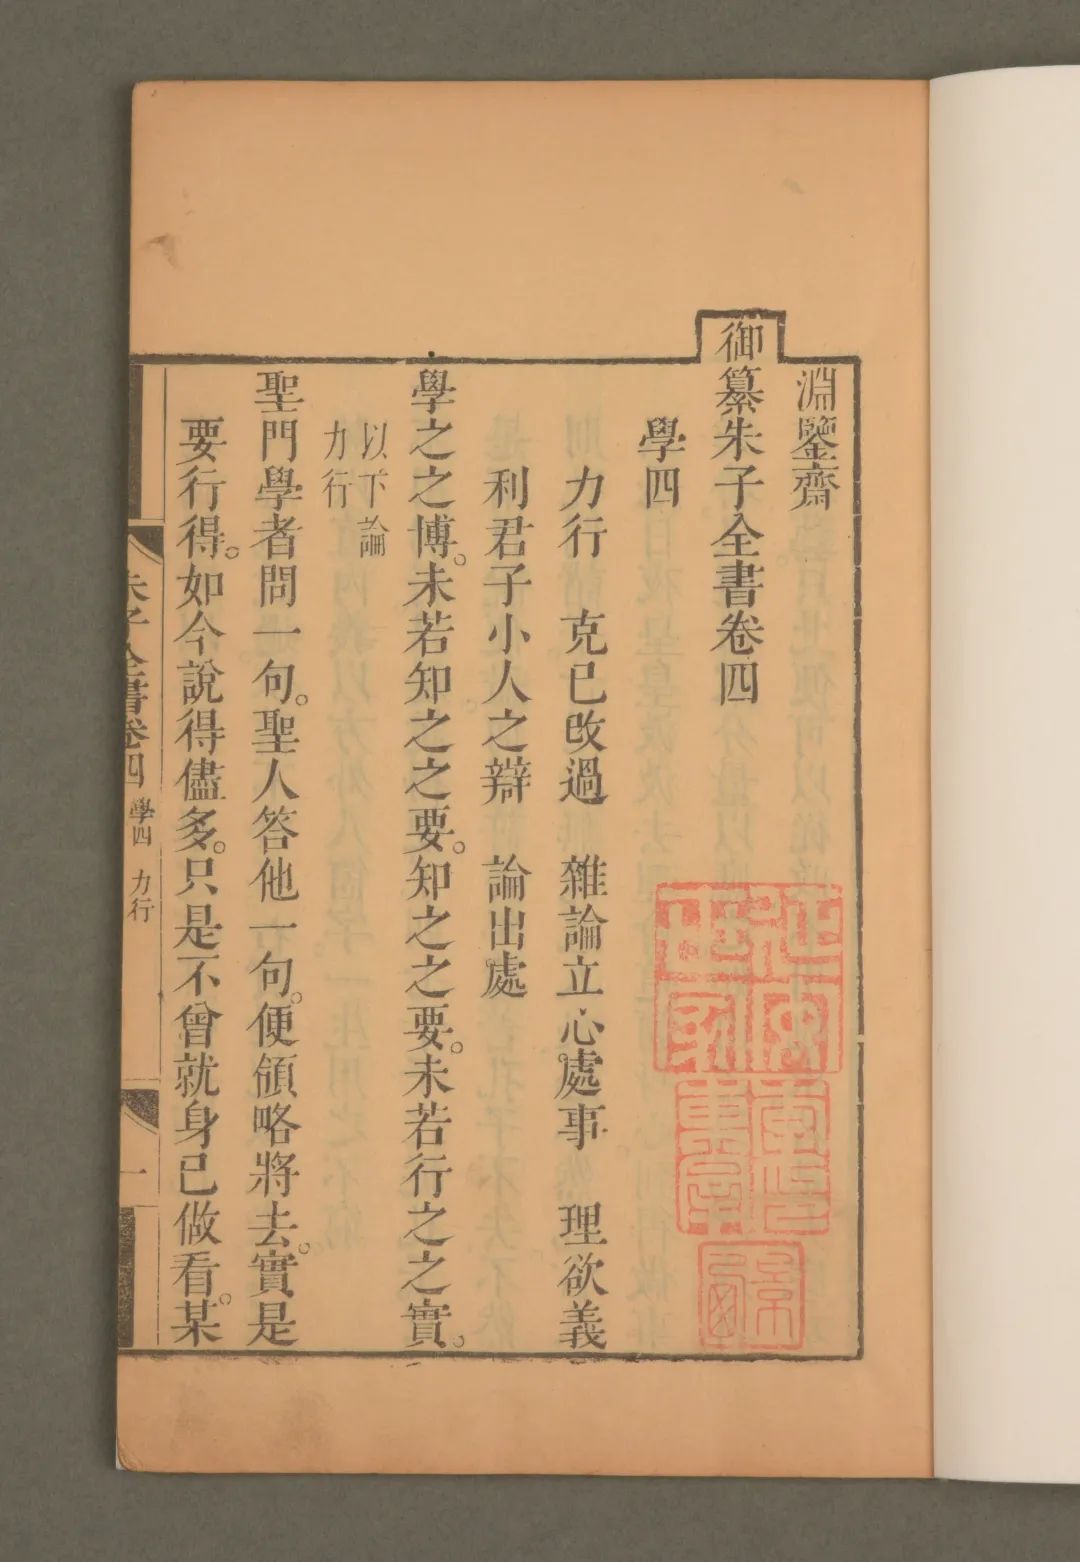 淵鑒齋
御纂朱子全書卷四
學四
力行　克已改過　雜論立心處事　理欲義
利君子小人之辯　論出處
學之之博。未若知之之要。知之之要。未若行之之實。
以下論
力行
聖門學者問一句。聖人答他一句。便領略將去。實是
要行得。如今說得儘多。只是不曾就身己做看。某
朱子全書卷四
學四　力行
一